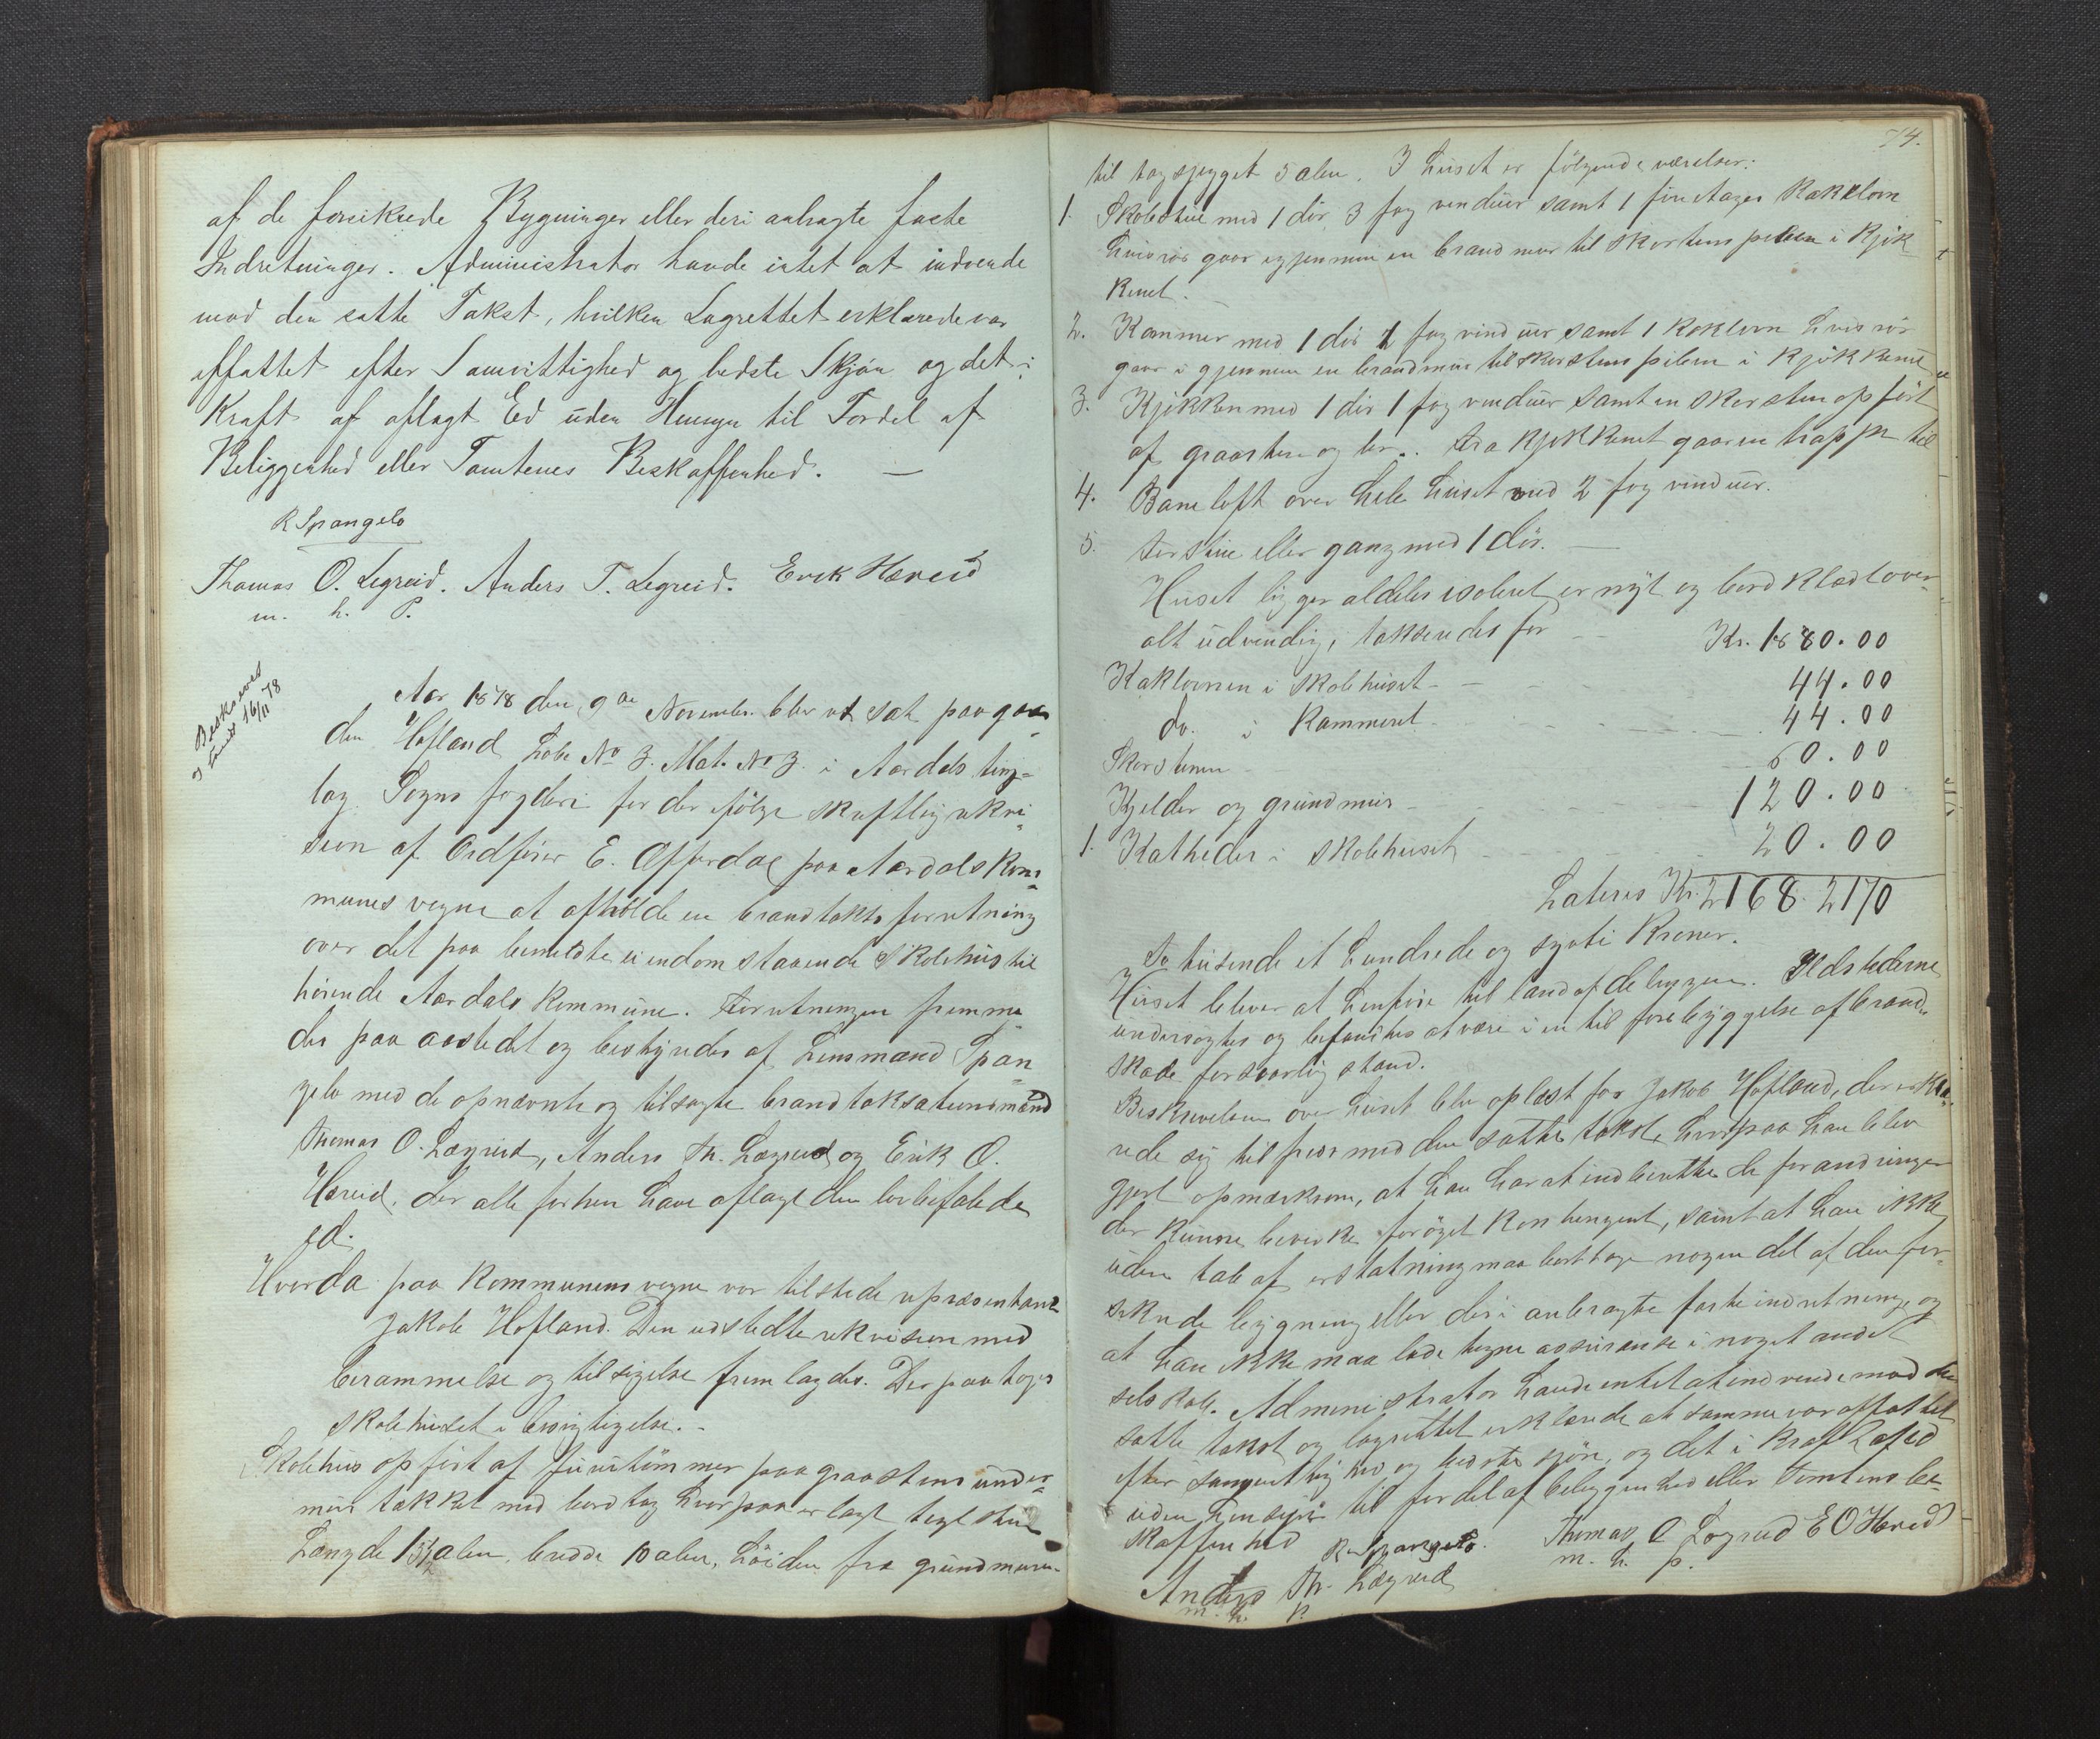 af de forsikrede Bygninger eller deri anbragte faste
Indretninger. Administrator havde intet at indvende
mod den satte Takst, hvilken Lagrettet erklærede var
affattet efter Samvittighed og bedste Skjøn og det i
Kraft af aflagt Ed uden Hensyn til Fordel af
Beliggenhed eller Tomtenes Beskaffenhed. —
R Spangelo
Thomas O. Legreid. Anders T. Legreid. Erik Hæreid
m. h. P.
Beskreves
16/11 78
Aar 1878 den 9de November blev ret sat paa gaar
den Hofland Løbe No 3. Mat. No 3. i Aardals ting-
lag Sogns fogderi for der ifølge skriftlig rekvi
sion af Ordfører E. Offerdal paa Aardals Kom
munes vegne at afholde en brandtakts forretning
over det paa bemeldte eiendom staaende Skolehus til
hørende Aardals Kommune. Forretningen fremme
des paa aastedet og bestyredes af Lensmand Span
gelo med de opnævnte og tilsagte brandtaksationsmænd
Thomas O. Lægreid, Anders Th. Lægreid og Erik O.
Hæreid. der alle forhen have aflagt den lovbefalede
ed.
Hvorda paa Kommunens vegne var tilstede repræsentant
Jakob Hofland. Den udstedte rekvision med
berammelse og tilsigelse fremlagdes. Derpaa toges
skolehuset i besigtigelse. -
Skolehus opført af furutømmer paa graastens under
mur tækket med bordtag hvorpaa er lagt tegl sten
Længde 13½ alen, bredde 10 alen, høiden fra grundmuren
74.
til tagskjegget 5 alen. I huset er følgende værelser:
1. Skolestue med 1 dør, 3 fag vinduer samt 1 fire Etages Kakelovn
hvis rør gaar igjennem en brandmur til skorstens piben i Kjøk
kenet.
2. Kammer med 1 dør 1 fag vinduer samt 1 Kakelovn hvis rør
gaar i gjennem en brandmur til skorstens piben i Kjøkkenet
3. Kjøkken med 1 dør 1 fag vinduer samt en skorsten opført
af graasten og ler. Fra Kjøkkenet gaar en trappe til
4. Bare loft over hele huset med 2 fag vinduer.
5. Forstue eller gang med 1 dør. —
Huset ligger aldeles isoleret er nyt og bordklædt over-
alt udvendig, takseredes for — Kr. 1880.00
Kakelovnen i Skolehuset - 44.00
do. i Kammeret - 44.00
Skorstenen - 60.00
Kjelder og grundmur - 120.00
1. Katheder i skolehuset 20.00
Lateris Kr. 2168. 2170
To tusende et hundrede og sytti Kroner.
Huset bliver at henføre til landafdelingen. Ildstederne
undersøgtes og befandtes at være i en til forebyggelse af brand
skade forsvarlig stand.
Beskrivelsen over huset blev oplæst for Jakob Hofland, der erklæ
rede sig tilfreds med den satte takst, hvorpaa han blev
gjort opmærksom, at han har at indberette de forandringer
der kunne bevirke forøget Kontingent, samt at han ikke
uden tab af erstatning maa borttage nogen del af den for-
sikrede bygning eller deri anbragte faste indretninger og
at han ikke maa lade tegne assuranse i noget andet
selskab. Administrator havde intet at indvende mod den
satte takst og lagrettet erklærede at samme var affattet
efter samvittighed og bedste skjøn, og det i Kraft af ed
uden hensyn til fordel af beliggenhed eller Tomtens be-
skaffenhed R Spangelo. Thomas O Lægreid E O Hæreid
m. h. p.
Anders Th. Lægreid
m. h. p.